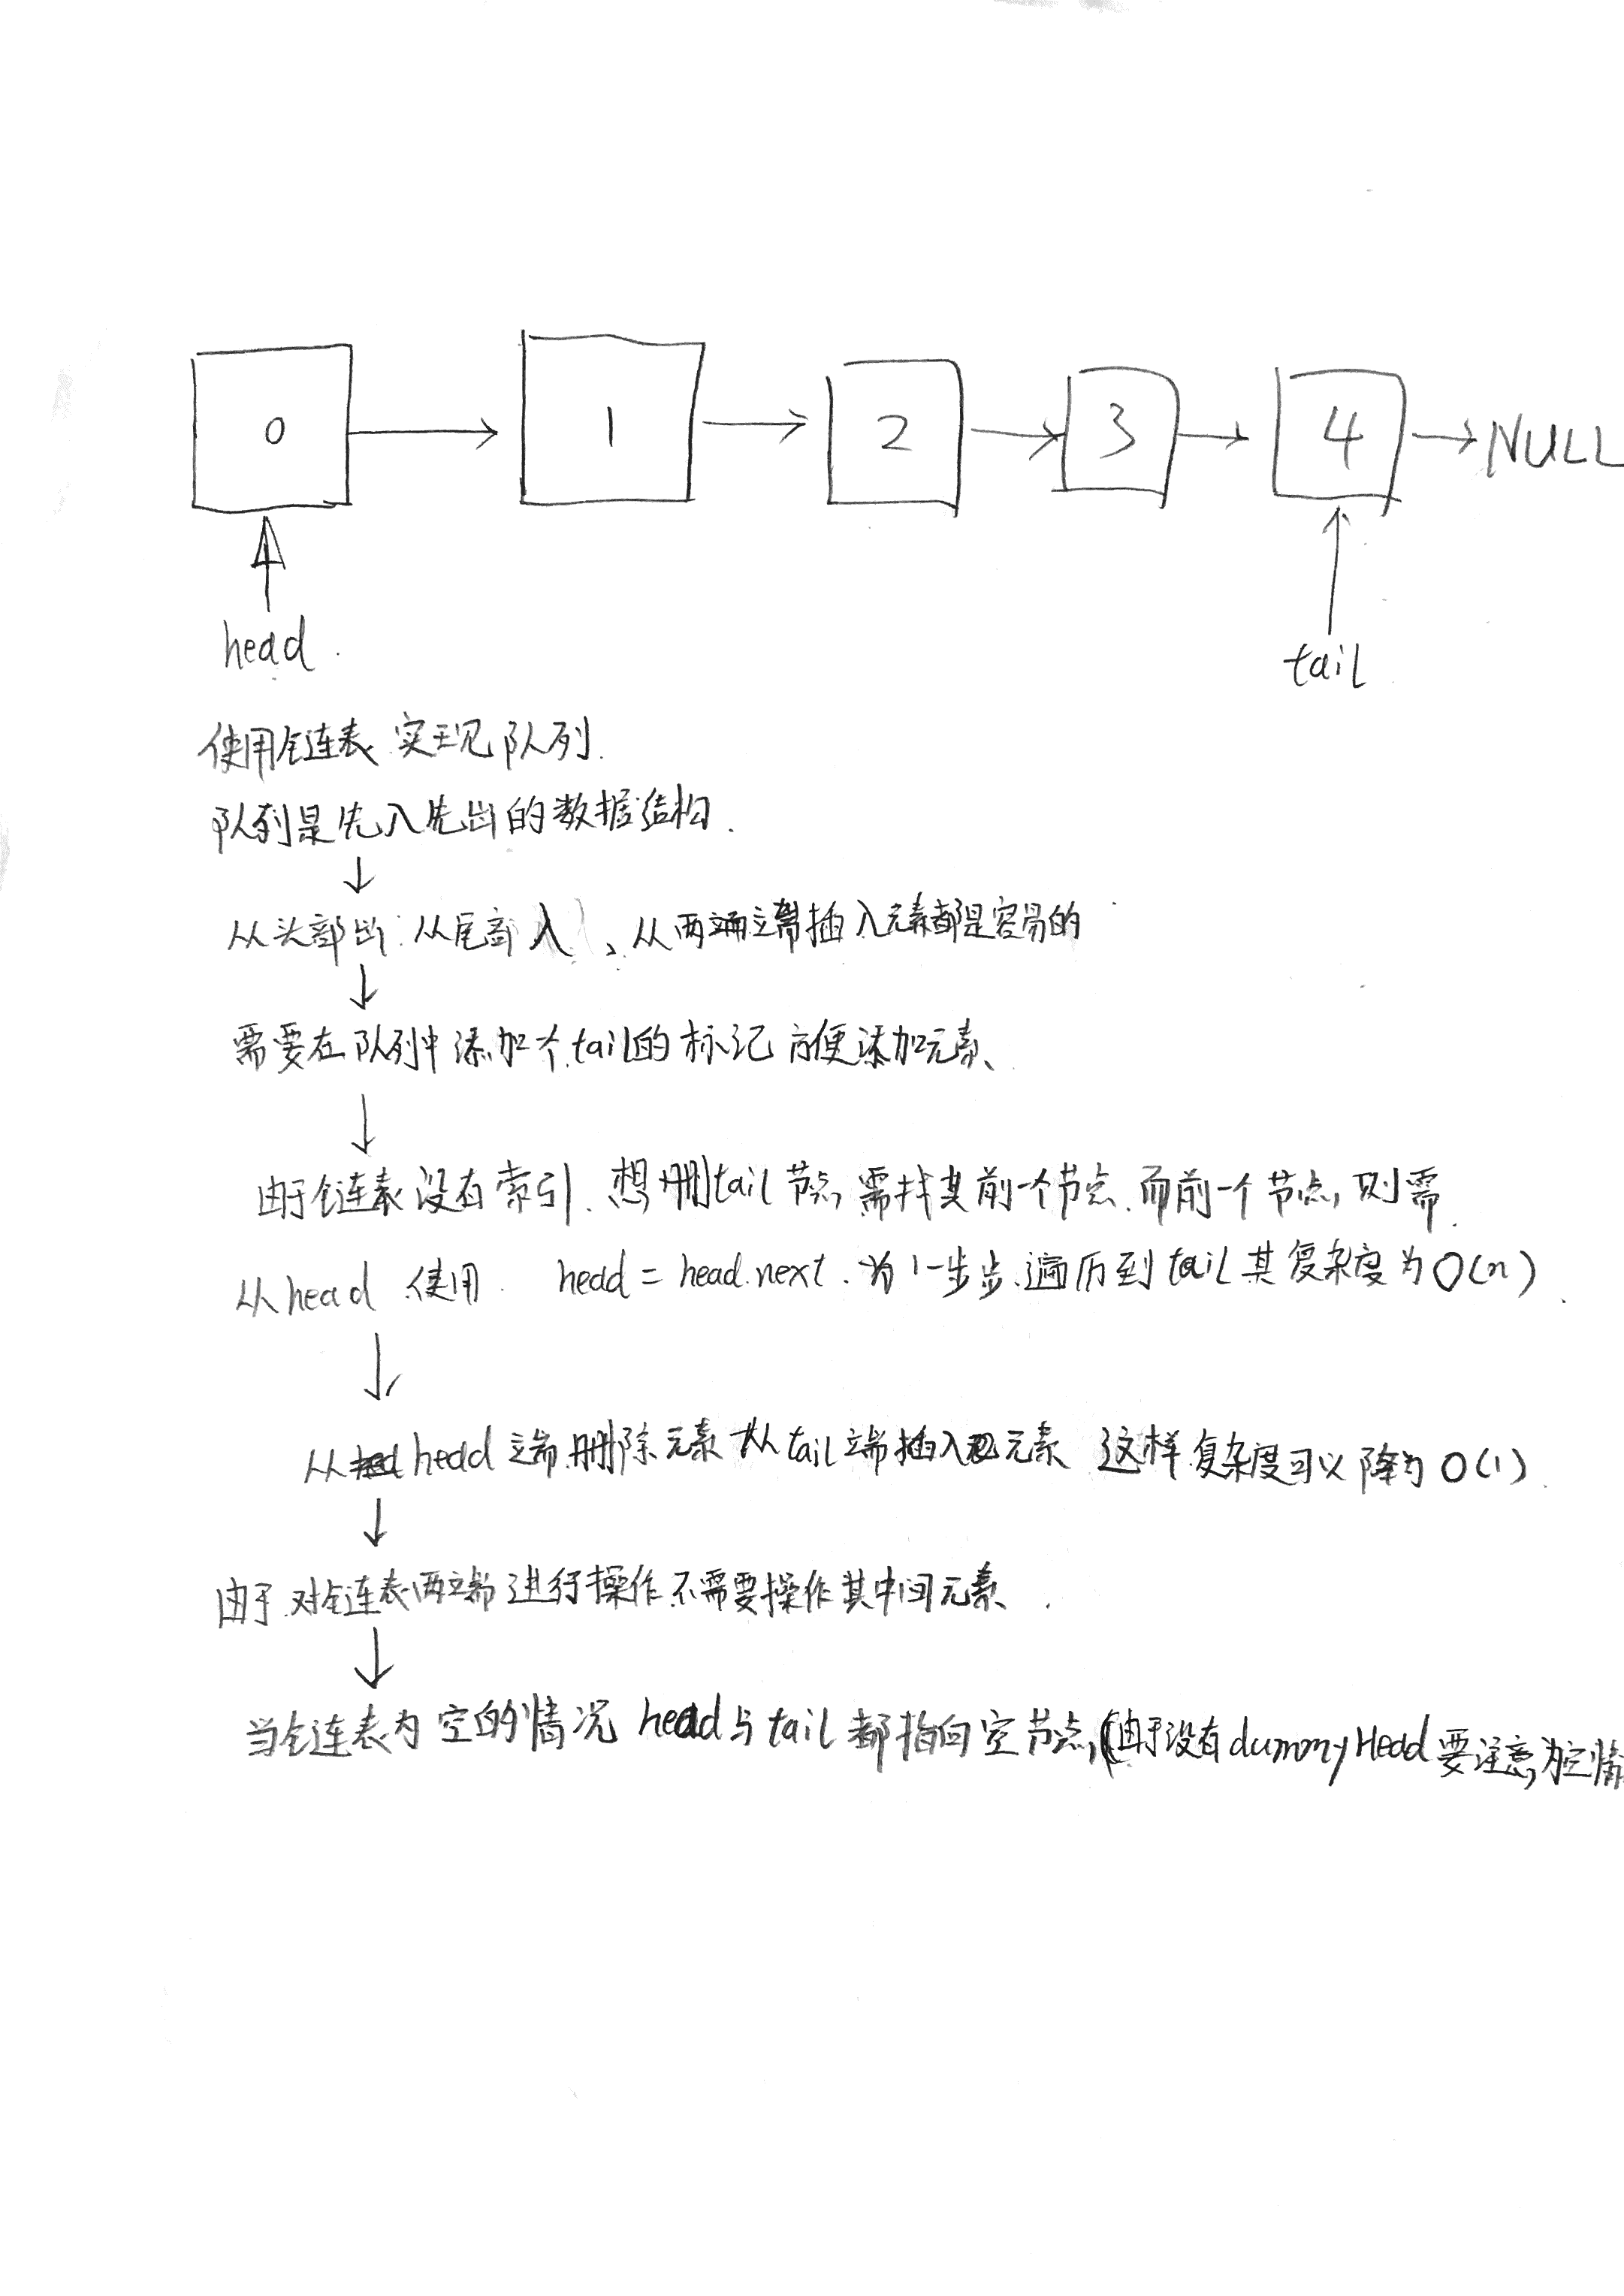 0 1 2 3 4 NULL
head
tail
使用链表实现队列.
队列是先入先出的数据结构.
从头部出 从尾部入、从两端插入元素都是容易的
需要在队列中添加个tail的标记方便添加元素、
由于链表没有索引.想删tail节点需找其前一个节点.而前一个节点,则需
从head 使用 head = head.next. 一步步遍历到tail其复杂度为O(n).
从head端删除元素 从tail端插入元素 这样复杂度可以降为O(1).
由于对链表两端进行操作不需要操作其中间元素.
当链表为空的情况 head与tail都指向空节点,(由于没有dummyHead要注意为空情